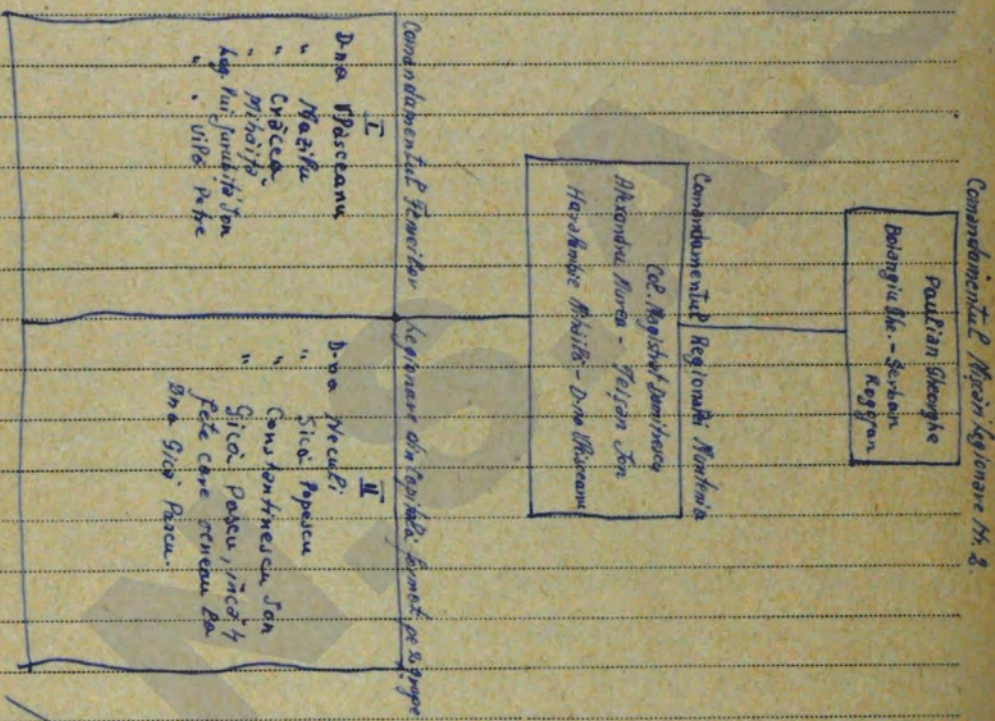 Comandamentul Mișcării Legionare Nr. 2.
Paulian Gheorghe
Boiangiu Ghe. - Șerban
Roggran
Comandamentul Regionalei Muntenia
Col. Magistrat Dumitrescu
Alexandru Murea - Ion
Haralambie Mihăilă - D-na Vîlsceanu
Comandamentul Femeilor Legionare din Capitală format pe 2 grupe
I
D-na Vîlsceanu
" Mazilu
" Crăcea
" Mihăiță
Leg. Pui Jurubiță Ion
" " Vilă Petre
II
D-na Neculi
" Sică Popescu
" Constantinescu Ion
" Gică Pascu, încă 4
fete care veneau la
Dna Gică Pascu.